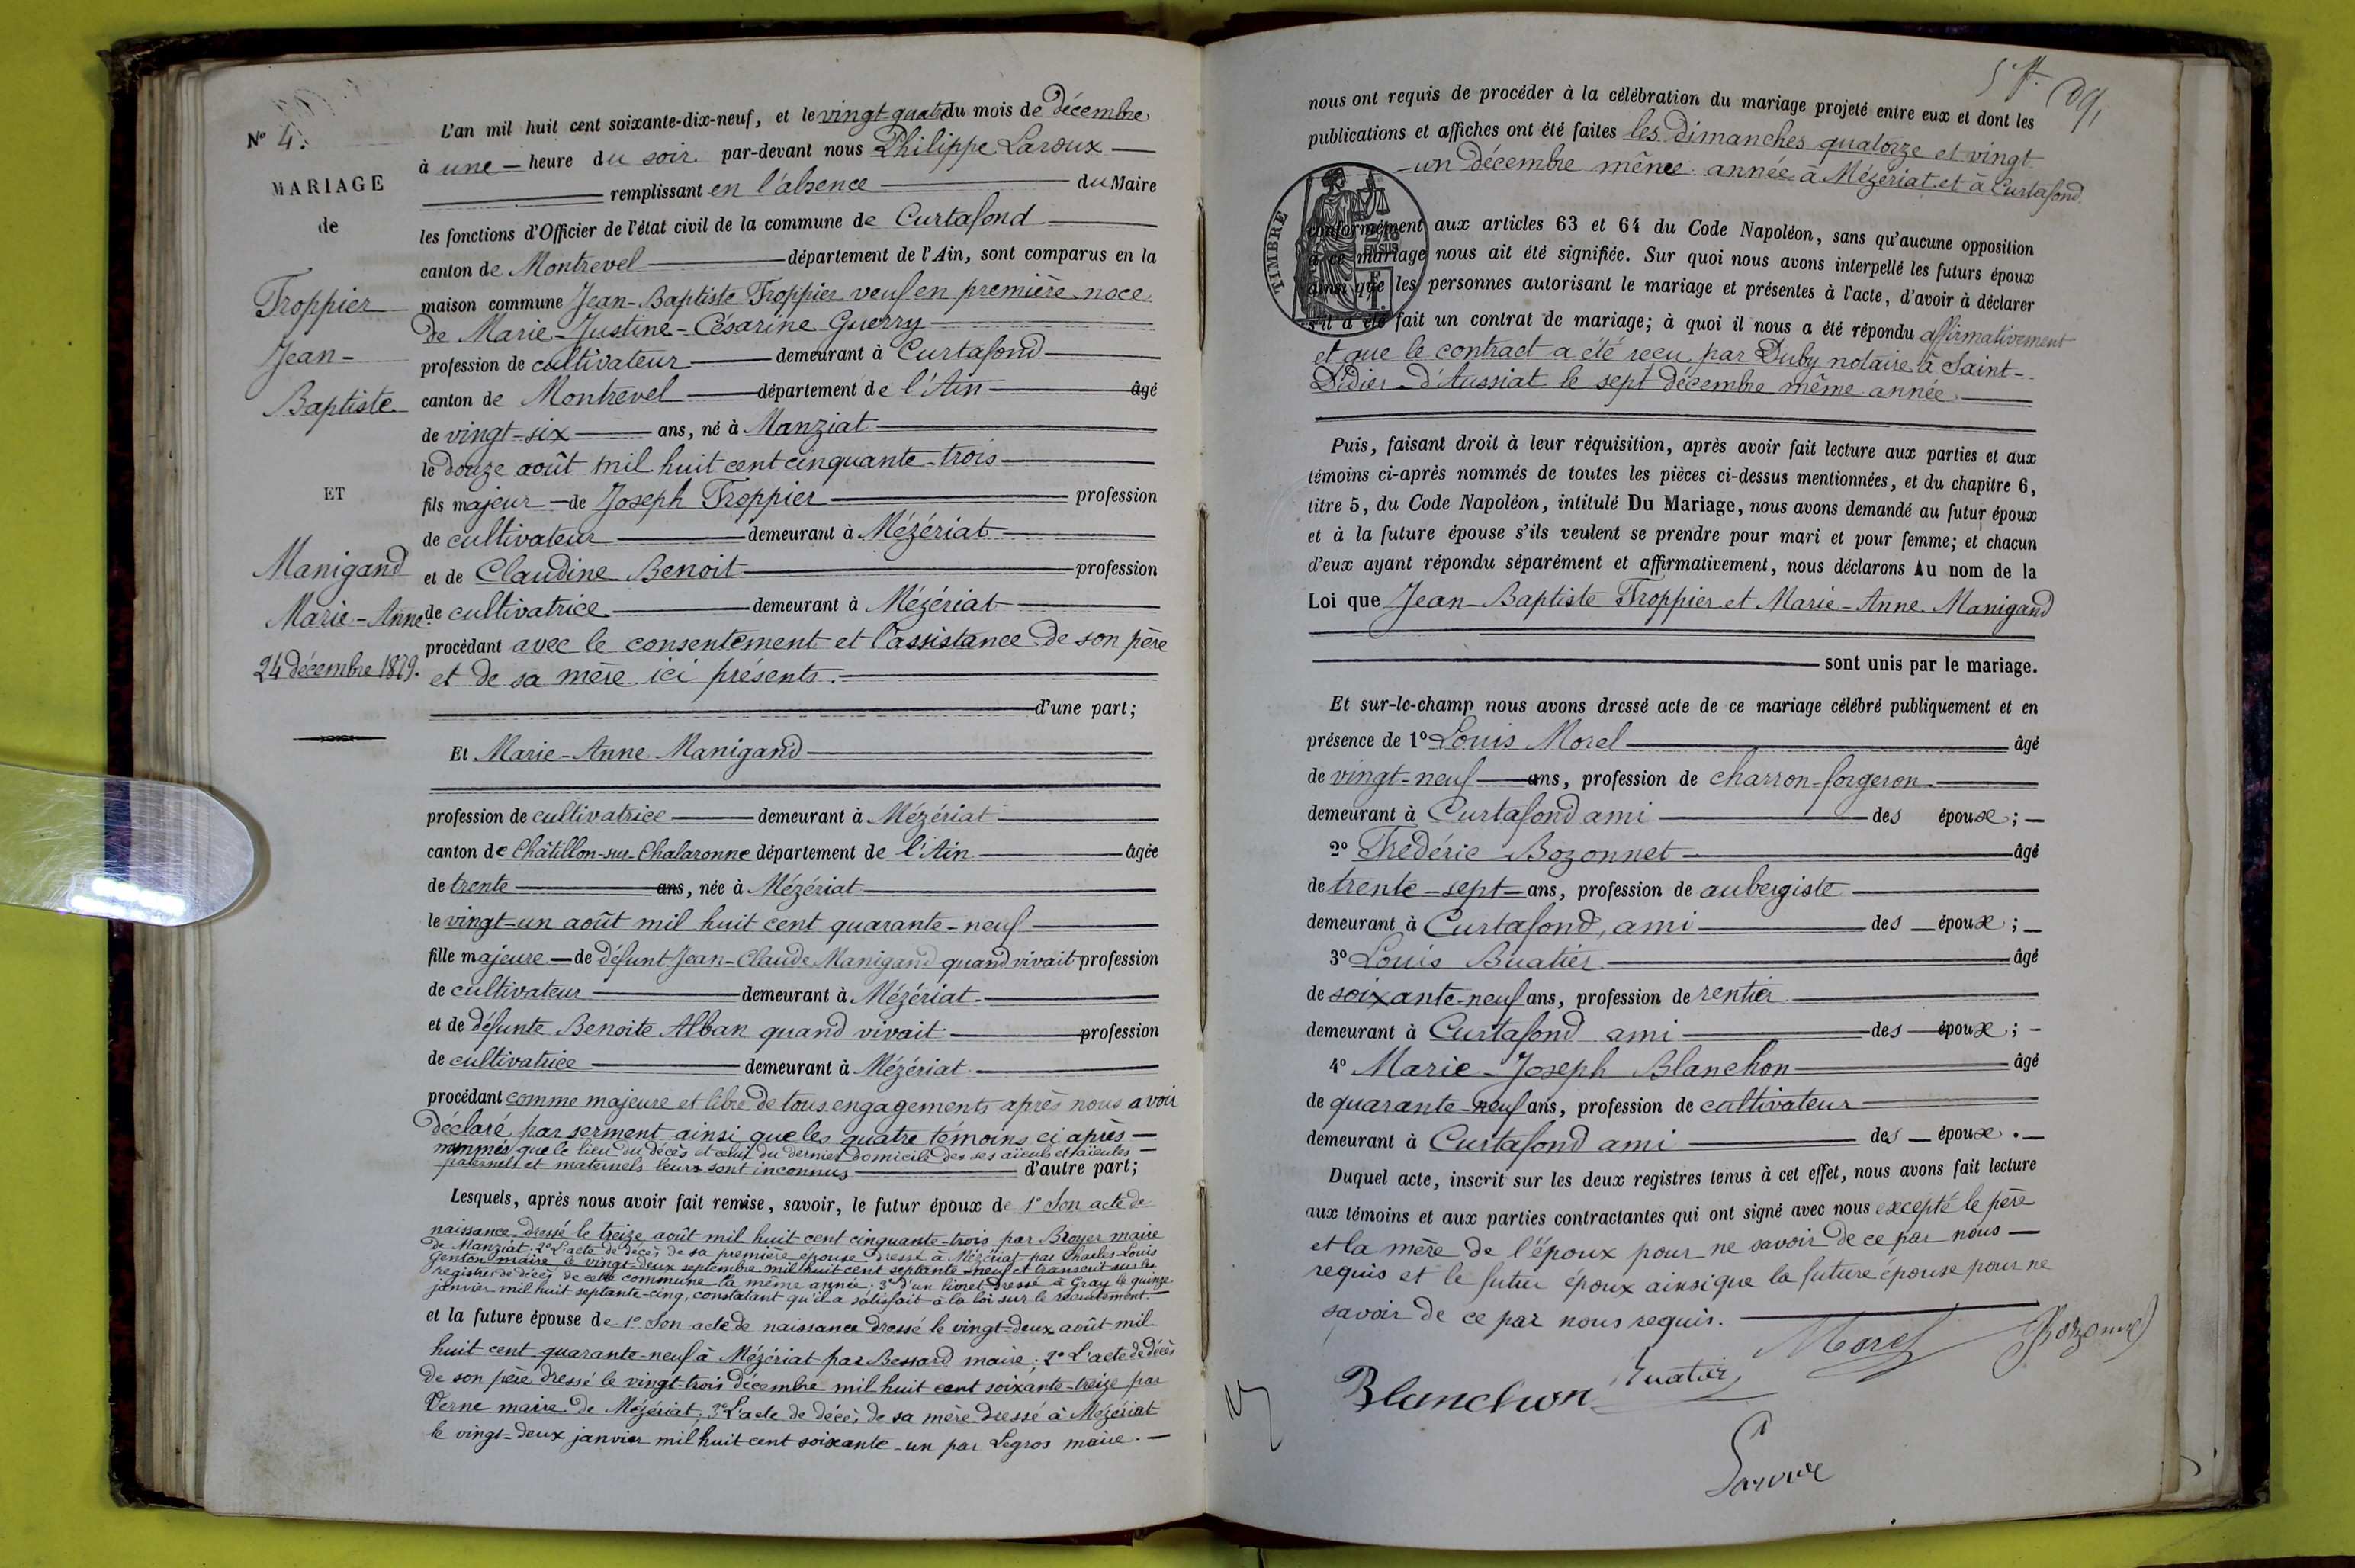 N° 4.
MARIAGE
de
Troppier
Jean-
Baptiste
ET
Manigand
Marie-Anne
24 décembre 1879.
L'an mil huit cent soixante-dix-neuf, et le vingt quatre du mois de décembre
à une heure du soir par-devant nous Philippe Laroux
remplissant en l'absence du Maire
les fonctions d'Officier de l'état civil de la commune de Curtafond
canton de Montrevel département de l'Ain, sont comparus en la
maison commune Jean-Baptiste Troppier veuf en première noce
de Marie-Justine-Césarine Guerry
profession de cultivateur demeurant à Curtafond
canton de Montrevel département de l'Ain âgé
de vingt-six ans, né à Manziat
le douze août mil huit cent cinquante-trois
fils majeur de Joseph Troppier profession
de cultivateur demeurant à Mézériat
et de Claudine Benoit profession
de cultivatrice demeurant à Mézériat
procédant avec le consentement et l'assistance de son père
et de sa mère ici présents.
d'une part;
Et Marie-Anne Manigand
profession de cultivatrice demeurant à Mézériat
canton de Châtillon-sur-Chalaronne département de l'Ain âgée
de trente ans, née à Mézériat
le vingt-un août mil huit cent quarante-neuf
fille majeure de défunt Jean-Claude Manigand quand vivait profession
de cultivateur demeurant à Mézériat
et de défunte Benoite Alban quand vivait profession
de cultivatrice demeurant à Mézériat
procédant comme majeure et libre de tous engagements après nous avoir
déclaré par serment ainsi que les quatre témoins ci après
nommés que le lieu du décès et celui du dernier domicile des ses aïeuls et aïeules
paternels et maternels leurs sont inconnus d'autre part;
Lesquels, après nous avoir fait remise, savoir, le futur époux de 1° Son acte de
naissance dressé le treize août mil huit cent cinquante-trois par Broyer maire
de Manziat; 2° L'acte de décès de sa première épouse dressé à Mézériat par Charles-Louis
Genton maire le vingt-deux septembre mil huit cent septante-neuf et transcrit sur les
registres de décès de cette commune la même année; 3° d'un livret dressé à Gray le quinze
janvier mil huit septante-cinq, constatant qu'il a satisfait à la loi sur le recrutement.
et la future épouse de 1° Son acte de naissance dressé le vingt-deux août mil
huit cent quarante-neuf à Mézériat par Bessard maire; 2° L'acte de décès
de son père dressé le vingt-trois décembre mil huit cent soixante-treize par
Verne maire de Mézériat; 3° L'acte de décès de sa mère dressé à Mézériat
le vingt-deux janvier mil huit cent soixante-un par Legros maire.
nous ont requis de procéder à la célébration du mariage projeté entre eux et dont les
publications et affiches ont été faites les dimanches quatorze et vingt
un décembre même année à Mézériat et à Curtafond
TIMBRE
conformément aux articles 63 et 64 du Code Napoléon, sans qu'aucune opposition
à ce mariage nous ait été signifiée. Sur quoi nous avons interpellé les futurs époux
ainsi que les personnes autorisant le mariage et présentes à l'acte, d'avoir à déclarer
s'il a été fait un contrat de mariage; à quoi il nous a été répondu affirmativement
et que le contract a été reçu par Duby notaire à Saint-
Didier-d'Aussiat le sept décembre même année
Puis, faisant droit à leur réquisition, après avoir fait lecture aux parties et aux
témoins ci-après nommés de toutes les pièces ci-dessus mentionnées, et du chapitre 6,
titre 5, du Code Napoléon, intitulé Du Mariage, nous avons demandé au futur époux
et à la future épouse s'ils veulent se prendre pour mari et pour femme; et chacun
d'eux ayant répondu séparément et affirmativement, nous déclarons Au nom de la
Loi que Jean-Baptiste Troppier et Marie-Anne Manigand
sont unis par le mariage.
Et sur-le-champ nous avons dressé acte de ce mariage célébré publiquement et en
présence de 1° Louis Morel âgé
de vingt-neuf ans, profession de charron-forgeron
demeurant à Curtafond ami des époux;
2° Frédéric Bozonnet âgé
de trente-sept ans, profession de aubergiste
demeurant à Curtafond, ami des époux;
3° Louis Buatier âgé
de soixante-neuf ans, profession de rentier
demeurant à Curtafond ami des époux;
4° Marie-Joseph Blanchon âgé
de quarante-neuf ans, profession de cultivateur
demeurant à Curtafond ami des époux.
Duquel acte, inscrit sur les deux registres tenus à cet effet, nous avons fait lecture
aux témoins et aux parties contractantes qui ont signé avec nous excepté le père
et la mère de l'époux pour ne savoir de ce par nous
requis et le futur époux ainsi que la future épouse pour ne
savoir de ce par nous requis.
Morel
Bozonnet
Blanchon
Buatier
Laroux